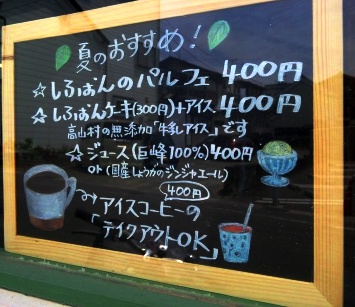 夏のおすすめ!
☆しふぉんのパルフェ 400円
☆しふぉんケーキ(300円)+アイス 400円
高山村の無添加「牛乳アイス」です
☆ジュース(巨峰100%)400円
or(国産しょうがのジンジャエール)
400円
アイスコーヒーの
「テイクアウトOK」